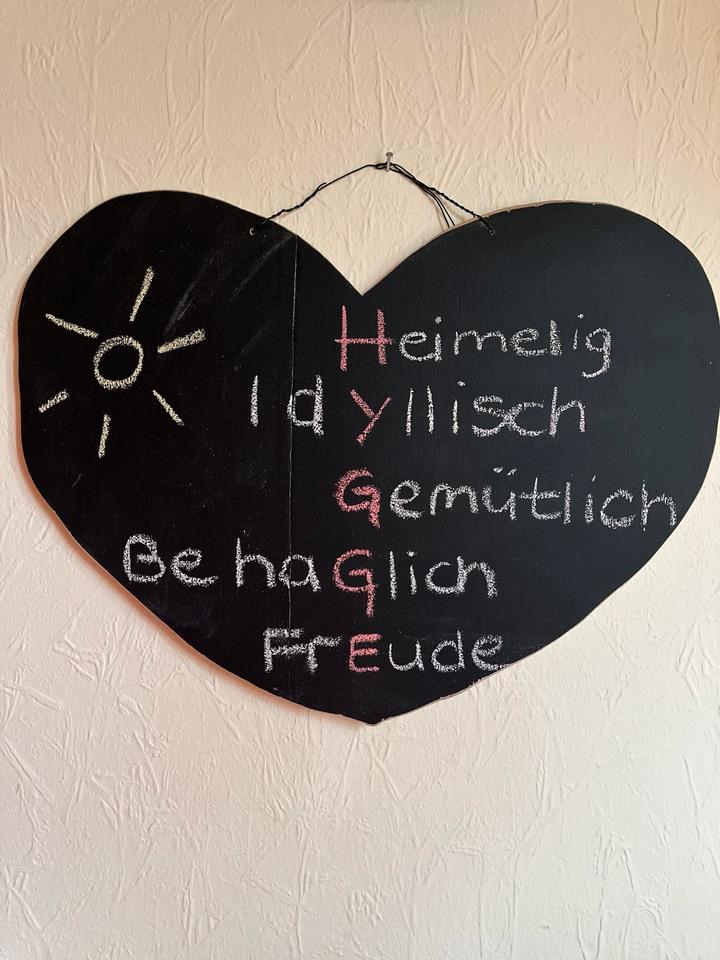 Heimelig
Idyllisch
Gemütlich
BehaGlich
FrEude